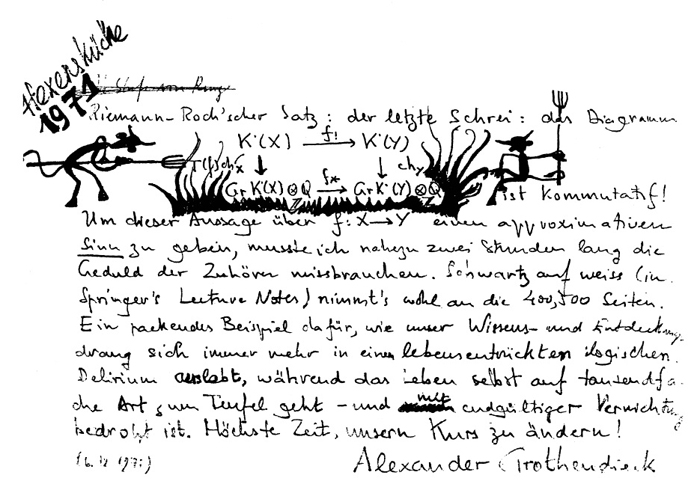 Hexenküche
1971
Riemann-Roch'scher Satz: der letzte Schrei: das Diagramm
K·(X) f! K·(Y)
T(f)chX chY
Gr K·(X)⊗Q f* Gr K·(Y)⊗Q
Z Z
ist kommutatif!
Um dieser Aussage über f: X → Y einen approximativen
Sinn zu geben, musste ich nahezu zwei Stunden lang die
Geduld der Zuhörer missbrauchen. Schwartz auf weiss (in
Springer's Lecture Notes) nimmt's wohl an die 400, 500 Seiten.
Ein packendes Beispiel dafür, wie unser Wissens- und Entdeckungs
drang sich immer mehr in einem lebensentrückten logischen
Delirium auslebt, während das Leben selbst auf tausendfa-
che Art zum Teufel geht - und mit endgültiger Vernichtung
bedroht ist. Höchste Zeit, unsern Kurs zu ändern!
Alexander Grothendieck